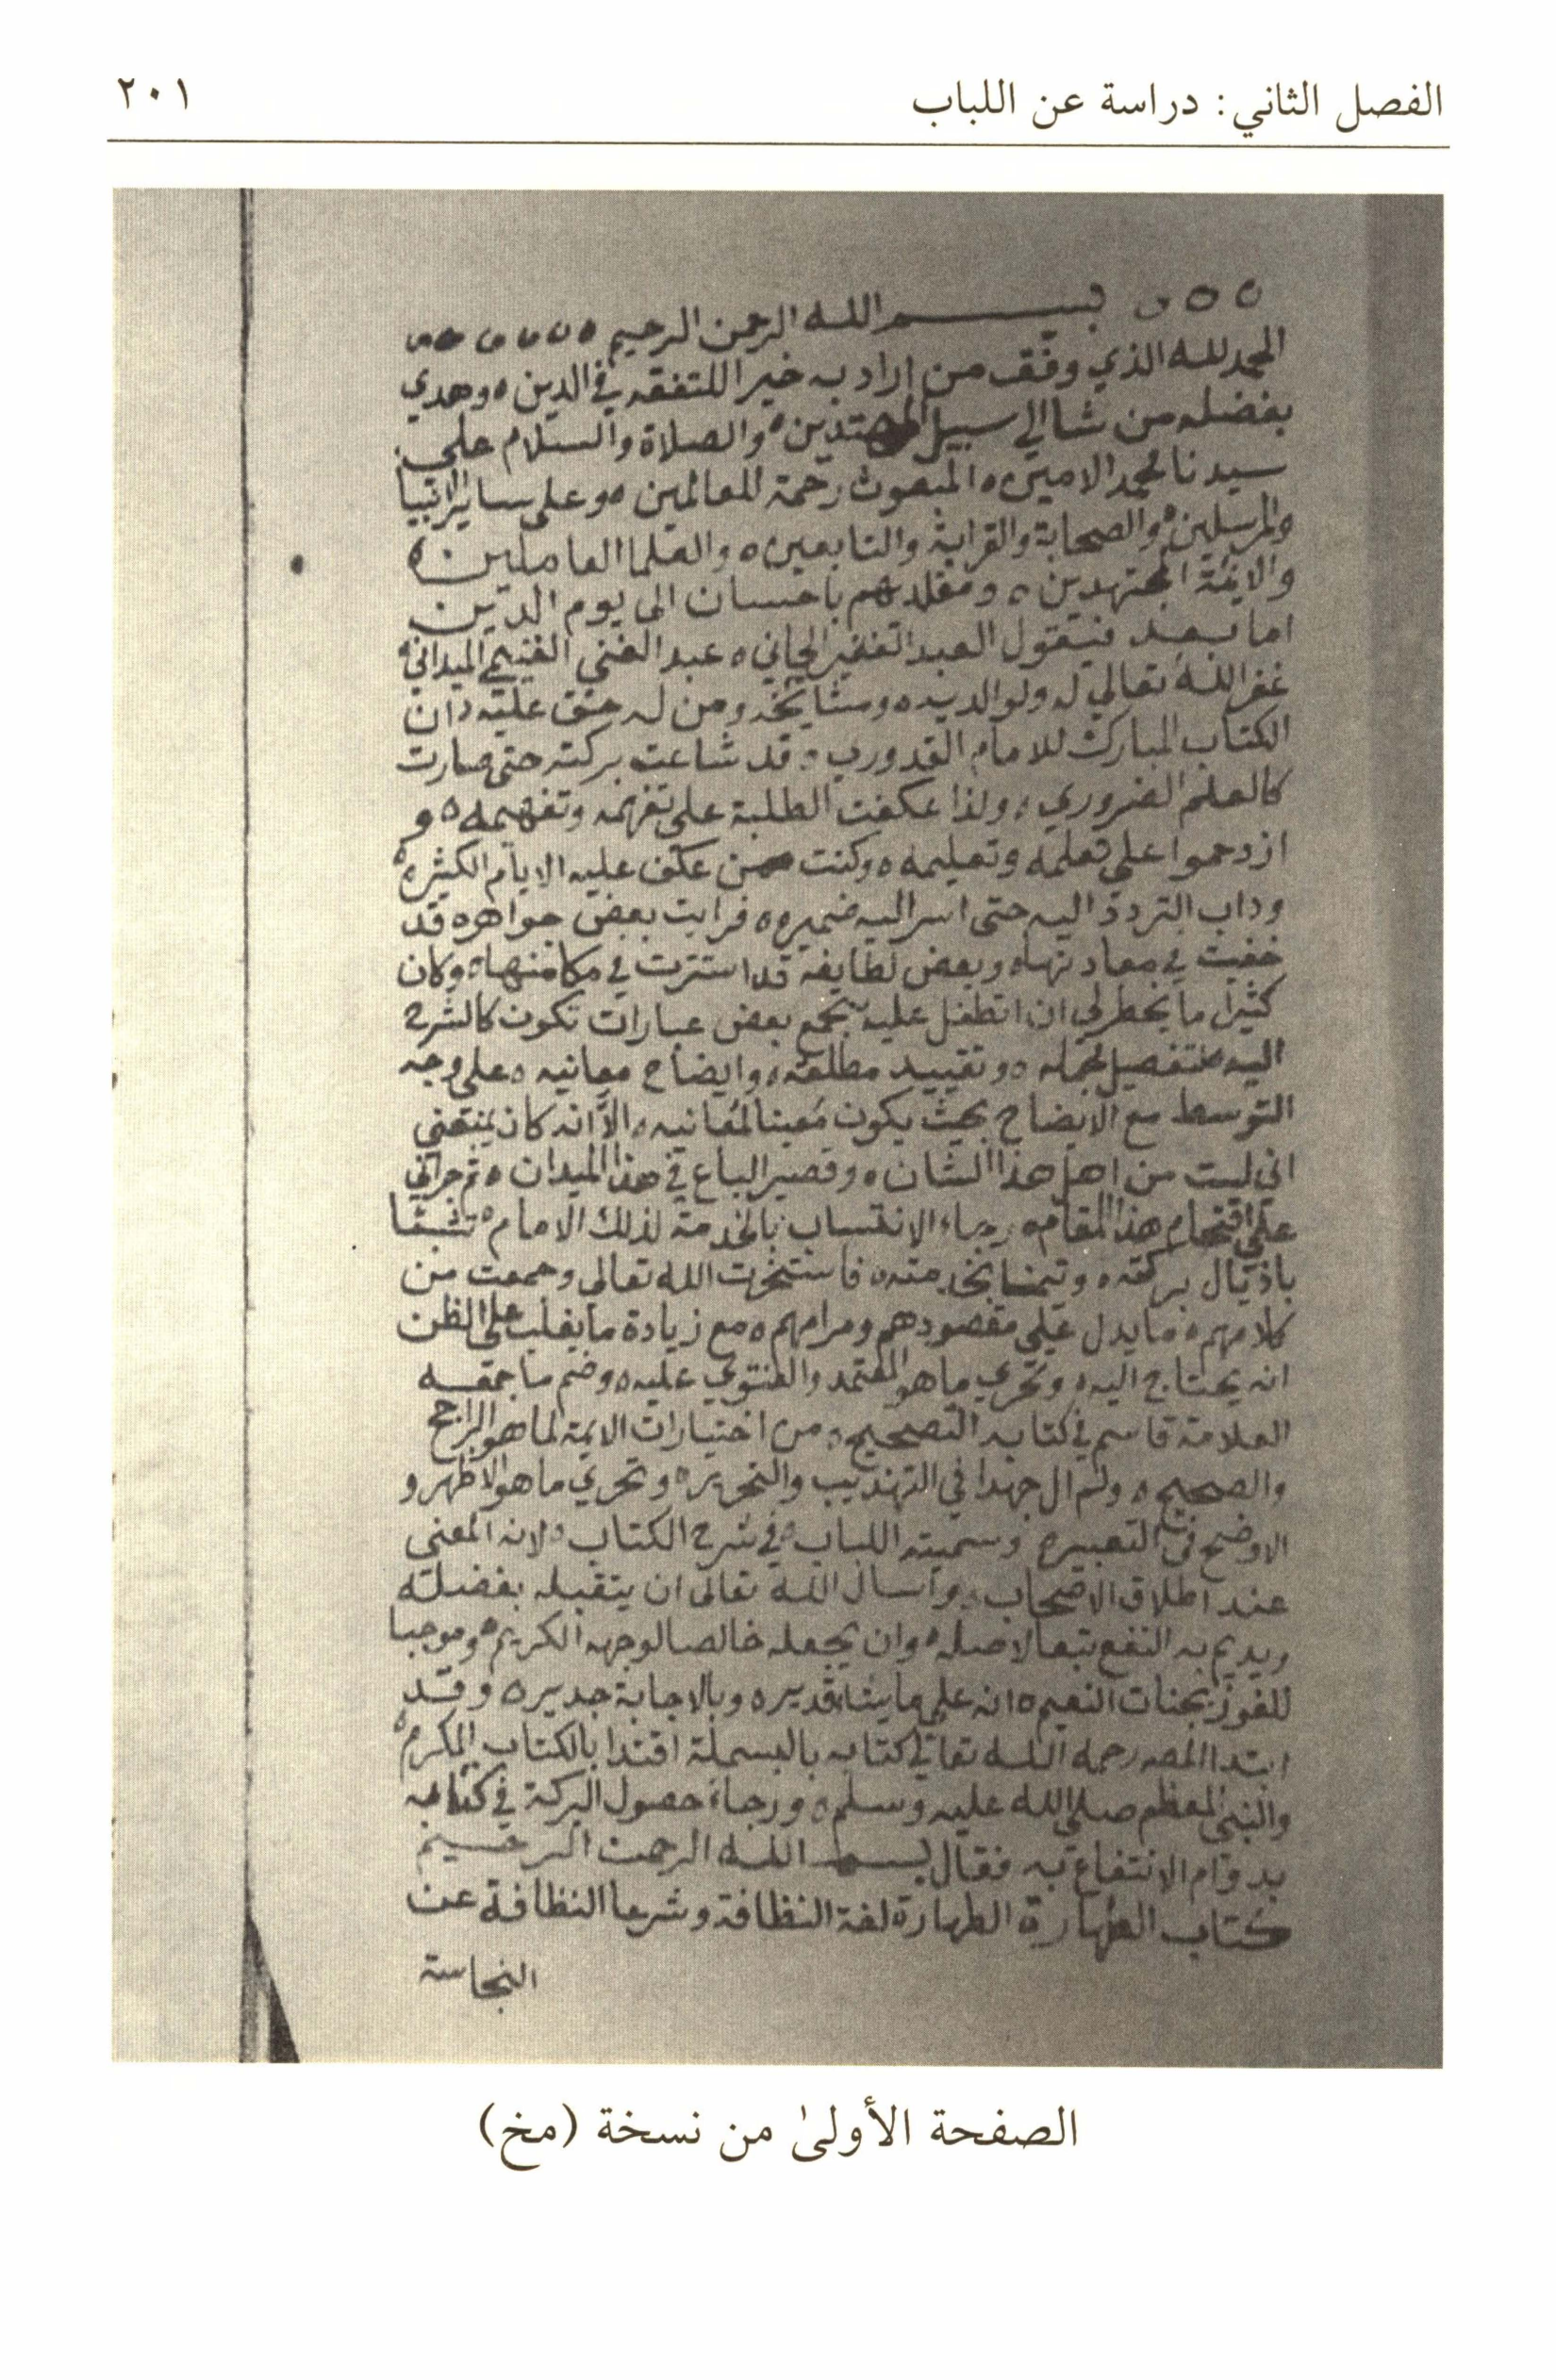 الفصل الثاني: دراسة عن اللباب ٢٠١
بسم الله الرحمن الرحيم
الحمد لله الذي وفق من اراد به خيرا للتفقه في الدين وهدي
بفضله من شا الي سبيل المهتدين والصلاة والسلام علي
سيدنا محمد الامين المبعوث رحمة للعالمين وعلى ساير الانبيا
والمرسلين والصحابة والقرابة والتابعين والعلما العاملين
والايمة المجتهدين ومقلديهم باحسان الى يوم الدين
اما بعد فيقول العبد الفقير الجاني عبد الغني الغنيمي الميداني
غفر الله تعالي له ولوالديه ومشايخه ومن له حق عليه ان
الكتاب المبارك للامام القدوري قد شاعت بركته حتى صارت
كالعلم الضروري ولذا عكفت الطلبة على تفهمه وتفهيمه و
ازدحموا على تعلمه وتعليمه وكنت ممن عكف عليه الايام الكثيره
وداب التردد اليه حتى اسر اليه ضميره فرايت بعض جواهره قد
خفيت في معادنها وبعض لطايفه قد استترت في مكامنها وكان
كثيرا ما يخطر لي ان اتطفل عليه بجمع بعض عبارات تكون كالشرح
اليه لتفصيل مجمله وتقييد مطلقه وايضاح معانيه على وجه
التوسط مع الايضاح بحيث يكون معينا لمعانيه الا انه كان يمنعني
اني لست من اهل هذا الشان وقصير الباع في هذا الميدان ثم جراني
على اقتحام هذا المقام رجاء الانتساب بالخدمة لذلك الامام تشبثا
باذيال بركته وتيمنا بخدمته فاستخرت الله تعالى وجمعت من
كلامهم ما يدل علي مقصودهم ومرامهم مع زيادة ما يغلب على الظن
انه يحتاج اليه وتحري ما هو المعتمد والفتوي عليه وضم ما جمعه
العلامة قاسم في كتابه التصحيح من اختيارات الايمة لما هو الراجح
والصحيح ولم ال جهدا في التهذيب والتحرير وتحري ما هو الاظهر و
الاوضح في التعبير وسميته اللباب في شرح الكتاب لانه المعنى
عند اطلاق الاصحاب واسال الله تعالى ان يتقبله بفضله
ويديم به النفع تبعا لاصله وان يجعله خالصا لوجهه الكريم وموجبا
للفوز بجنات النعيم انه علي ما يشا قدير وبالاجابة جدير وقد
ابتدا المصـ رحمه الله تعالي كتابه بالبسملة اقتدا بالكتاب المكرم
والنبي المعظم صلى الله عليه وسلم ورجاء حصول البركة في كتابه
بدوام الانتفاع به فقال بسم الله الرحمن الرحيم
كتاب الطهارة الطهارة لغة النظافة وشرعا النظافة عن
النجاسة
الصفحة الأولىٰ من نسخة (مخ)